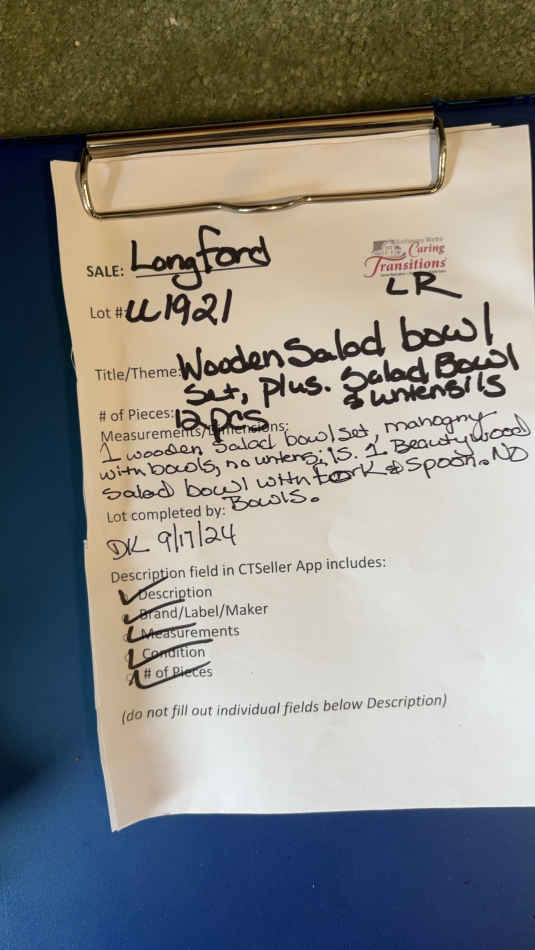 SALE: Longford
Caring
Transitions
LR
Lot #: U1921
Title/Theme: Wooden Salad bowl
Set, Plus. Salad Bowl
& untensils
# of Pieces: 12 pcs
Measurements/Dimensions:
1 wooden Salad bowl set, mahogny
with bowls, no untensils. 1 Beautywood
Salad bowl with fork & spoon. NO
Bowls.
Lot completed by:
DK 9/17/24
Description field in CTSeller App includes:
Description
Brand/Label/Maker
Measurements
Condition
# of Pieces
(do not fill out individual fields below Description)